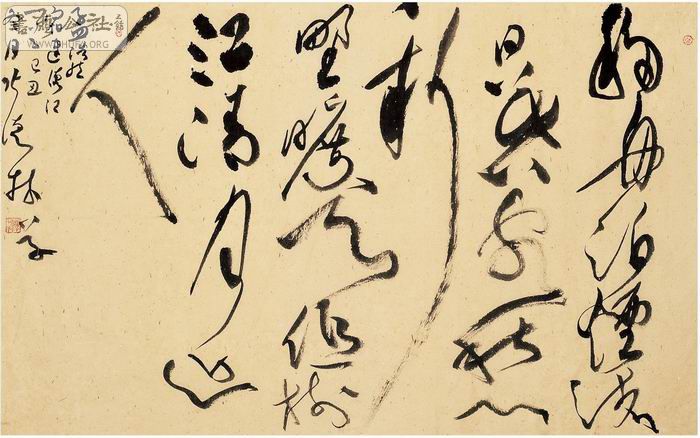 移舟泊煙渚
日暮客愁
新
野曠天低樹
江清月近
人
孟浩然
宿建德江
己丑